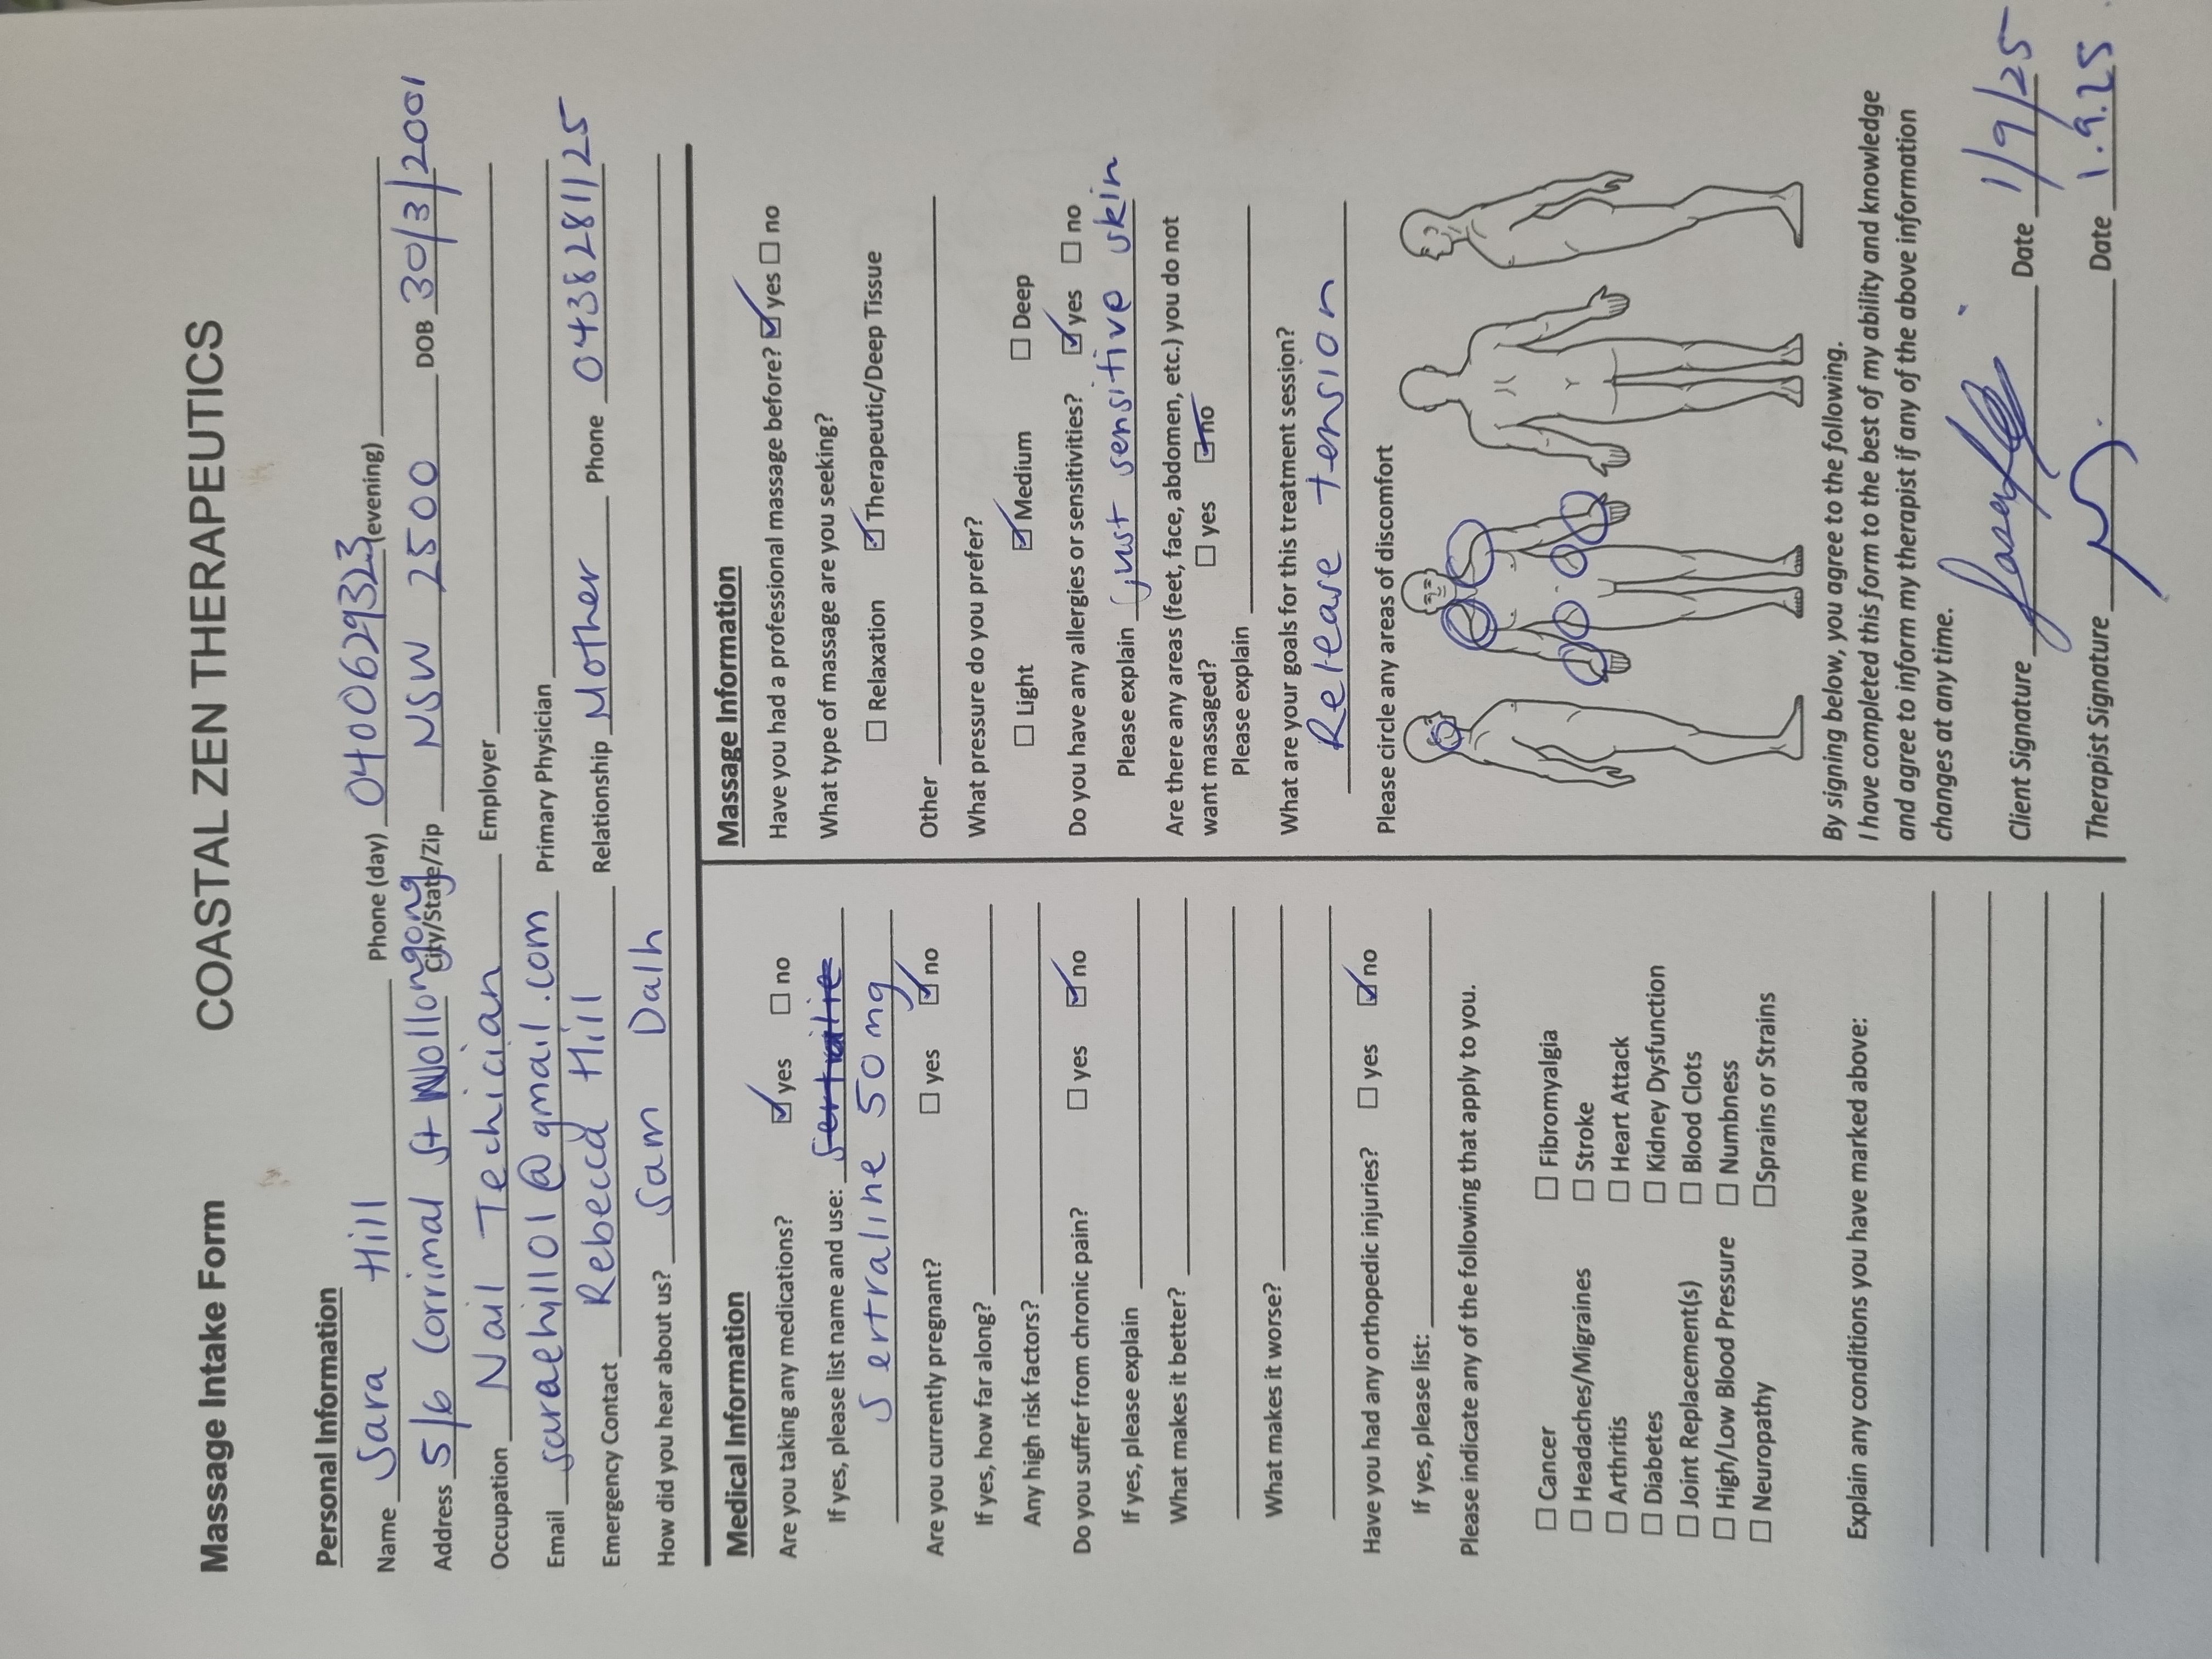 Massage Intake Form COASTAL ZEN THERAPEUTICS
Personal Information
Name Sara Hill Phone (day) 0400629323 (evening)
Address 5/6 Corrimal St Wollongong City/State/Zip NSW 2500 DOB 30/3/2001
Occupation Nail Techician Employer
Email saraehill01@gmail.com Primary Physician
Emergency Contact Rebecca Hill Relationship Mother Phone 0438281125
How did you hear about us? Sam Dalh
Medical Information
Are you taking any medications? ☑ yes ☐ no
If yes, please list name and use:
Sertraline 50mg
Are you currently pregnant? ☐ yes ☑ no
If yes, how far along?
Any high risk factors?
Do you suffer from chronic pain? ☐ yes ☑ no
If yes, please explain
What makes it better?
What makes it worse?
Have you had any orthopedic injuries? ☐ yes ☑ no
If yes, please list:
Please indicate any of the following that apply to you.
☐ Cancer ☐ Fibromyalgia
☐ Headaches/Migraines ☐ Stroke
☐ Arthritis ☐ Heart Attack
☐ Diabetes ☐ Kidney Dysfunction
☐ Joint Replacement(s) ☐ Blood Clots
☐ High/Low Blood Pressure ☐ Numbness
☐ Neuropathy ☐ Sprains or Strains
Explain any conditions you have marked above:
Massage Information
Have you had a professional massage before? ☑ yes ☐ no
What type of massage are you seeking?
☐ Relaxation ☑ Therapeutic/Deep Tissue
Other
What pressure do you prefer?
☐ Light ☑ Medium ☐ Deep
Do you have any allergies or sensitivities? ☑ yes ☐ no
Please explain just sensitive skin
Are there any areas (feet, face, abdomen, etc.) you do not
want massaged? ☐ yes ☑ no
Please explain
What are your goals for this treatment session?
Release tension
Please circle any areas of discomfort
By signing below, you agree to the following.
I have completed this form to the best of my ability and knowledge
and agree to inform my therapist if any of the above information
changes at any time.
Client Signature Date 1/9/25
Therapist Signature Date 1.9.25